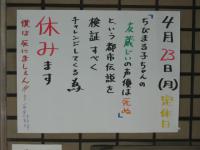 4月23日(月)定休日
「ちびまる子ちゃんの
友蔵じいの声優は死ぬ」
という都市伝説を
検証すべく
チャレンジしてくる為
休みます
僕は死にましぇん!!